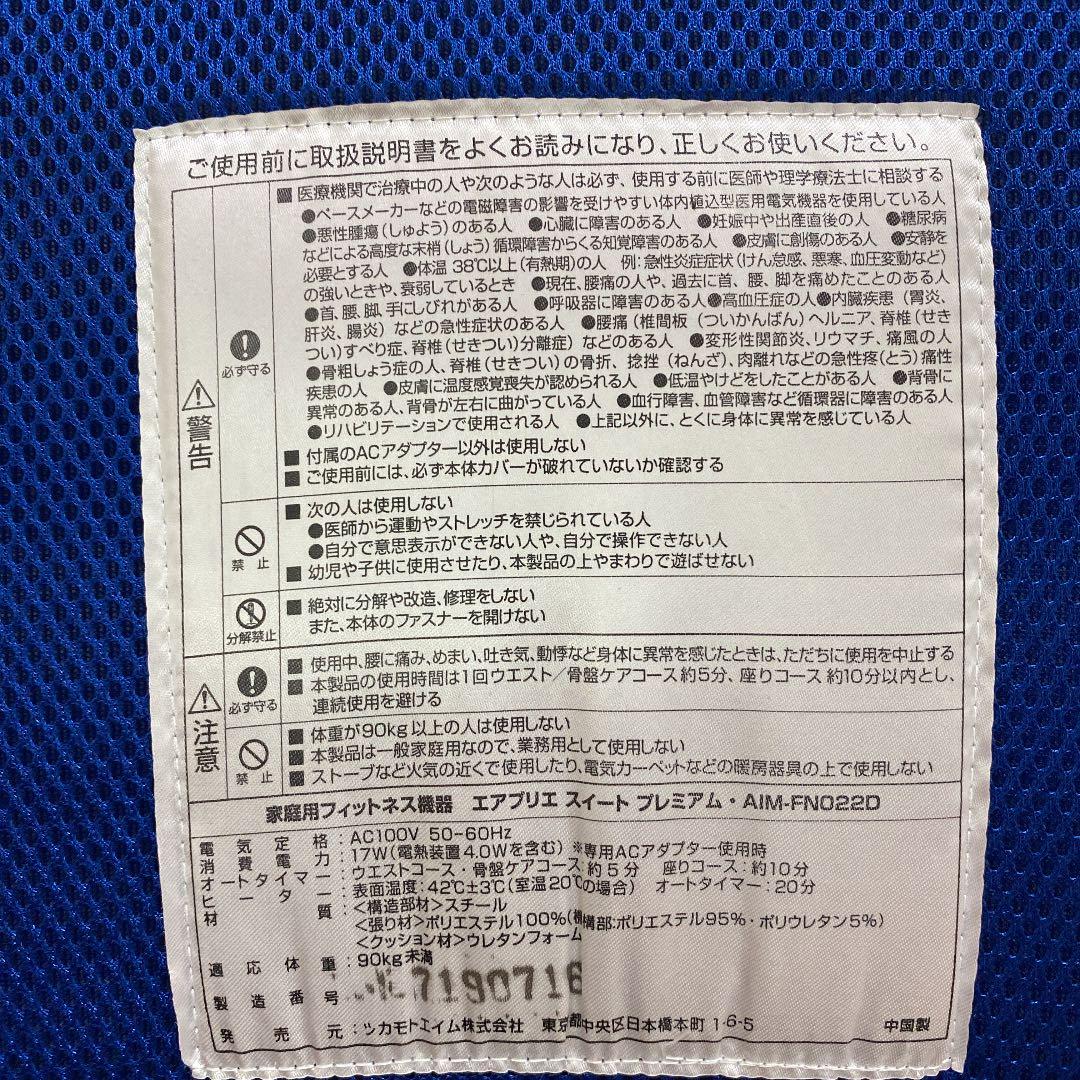 ご使用前に取扱説明書をよくお読みになり、正しくお使いください。
警告
必ず守る
■ 医療機関で治療中の人や次のような人は必ず、使用する前に医師や理学療法士に相談する
●ペースメーカーなどの電磁障害の影響を受けやすい体内植込型医用電気機器を使用している人
●悪性腫瘍(しゅよう)のある人 ●心臓に障害のある人 ●妊娠中や出産直後の人 ●糖尿病
などによる高度な末梢(しょう)循環障害からくる知覚障害のある人 ●皮膚に創傷のある人 ●安静を
必要とする人 ●体温 38℃以上(有熱期)の人 例:急性炎症症状(けん怠感、悪寒、血圧変動など)
の強いときや、衰弱しているとき ●現在、腰痛の人や、過去に首、腰、脚を痛めたことのある人
●首、腰、脚、手にしびれがある人 ●呼吸器に障害のある人●高血圧症の人●内臓疾患(胃炎、
肝炎、腸炎)などの急性症状のある人 ●腰痛(椎間板(ついかんばん)ヘルニア、脊椎(せき
つい)すべり症、脊椎(せきつい)分離症)などのある人 ●変形性関節炎、リウマチ、痛風の人
●骨粗しょう症の人、脊椎(せきつい)の骨折、捻挫(ねんざ)、肉離れなどの急性疼(とう)痛性
疾患の人 ●皮膚に温度感覚喪失が認められる人 ●低温やけどをしたことがある人 ●背骨に
異常のある人、背骨が左右に曲がっている人 ●血行障害、血管障害など循環器に障害のある人
●リハビリテーションで使用される人 ●上記以外に、とくに身体に異常を感じている人
■ 付属のACアダプター以外は使用しない
■ ご使用前には、必ず本体カバーが破れていないか確認する
禁止
■ 次の人は使用しない
●医師から運動やストレッチを禁じられている人
●自分で意思表示ができない人や、自分で操作できない人
■ 幼児や子供に使用させたり、本製品の上やまわりで遊ばせない
分解禁止
■ 絶対に分解や改造、修理をしない
また、本体のファスナーを開けない
注意
必ず守る
■ 使用中、腰に痛み、めまい、吐き気、動悸など身体に異常を感じたときは、ただちに使用を中止する
■ 本製品の使用時間は1回ウエスト/骨盤ケアコース 約5分、座りコース 約10分以内とし、
連続使用を避ける
禁止
■ 体重が90kg以上の人は使用しない
■ 本製品は一般家庭用なので、業務用として使用しない
■ ストーブなど火気の近くで使用したり、電気カーペットなどの暖房器具の上で使用しない
家庭用フィットネス機器 エアブリエ スイート プレミアム・AIM-FN022D
電気定格:AC100V 50-60Hz
消費電力:17W(電熱装置4.0Wを含む)※専用ACアダプター使用時
オートタイマー:ウエストコース・骨盤ケアコース:約5分 座りコース:約10分
ヒーター:表面温度:42℃±3℃(室温20℃の場合) オートタイマー:20分
材質:<構造部材>スチール
<張り材>ポリエステル100%(構部:ポリエステル95%・ポリウレタン5%)
<クッション材>ウレタンフォーム
適応体重:90kg未満
製造番号:7190716
発売元:ツカモトエイム株式会社 東京都中央区日本橋本町1-6-5 中国製